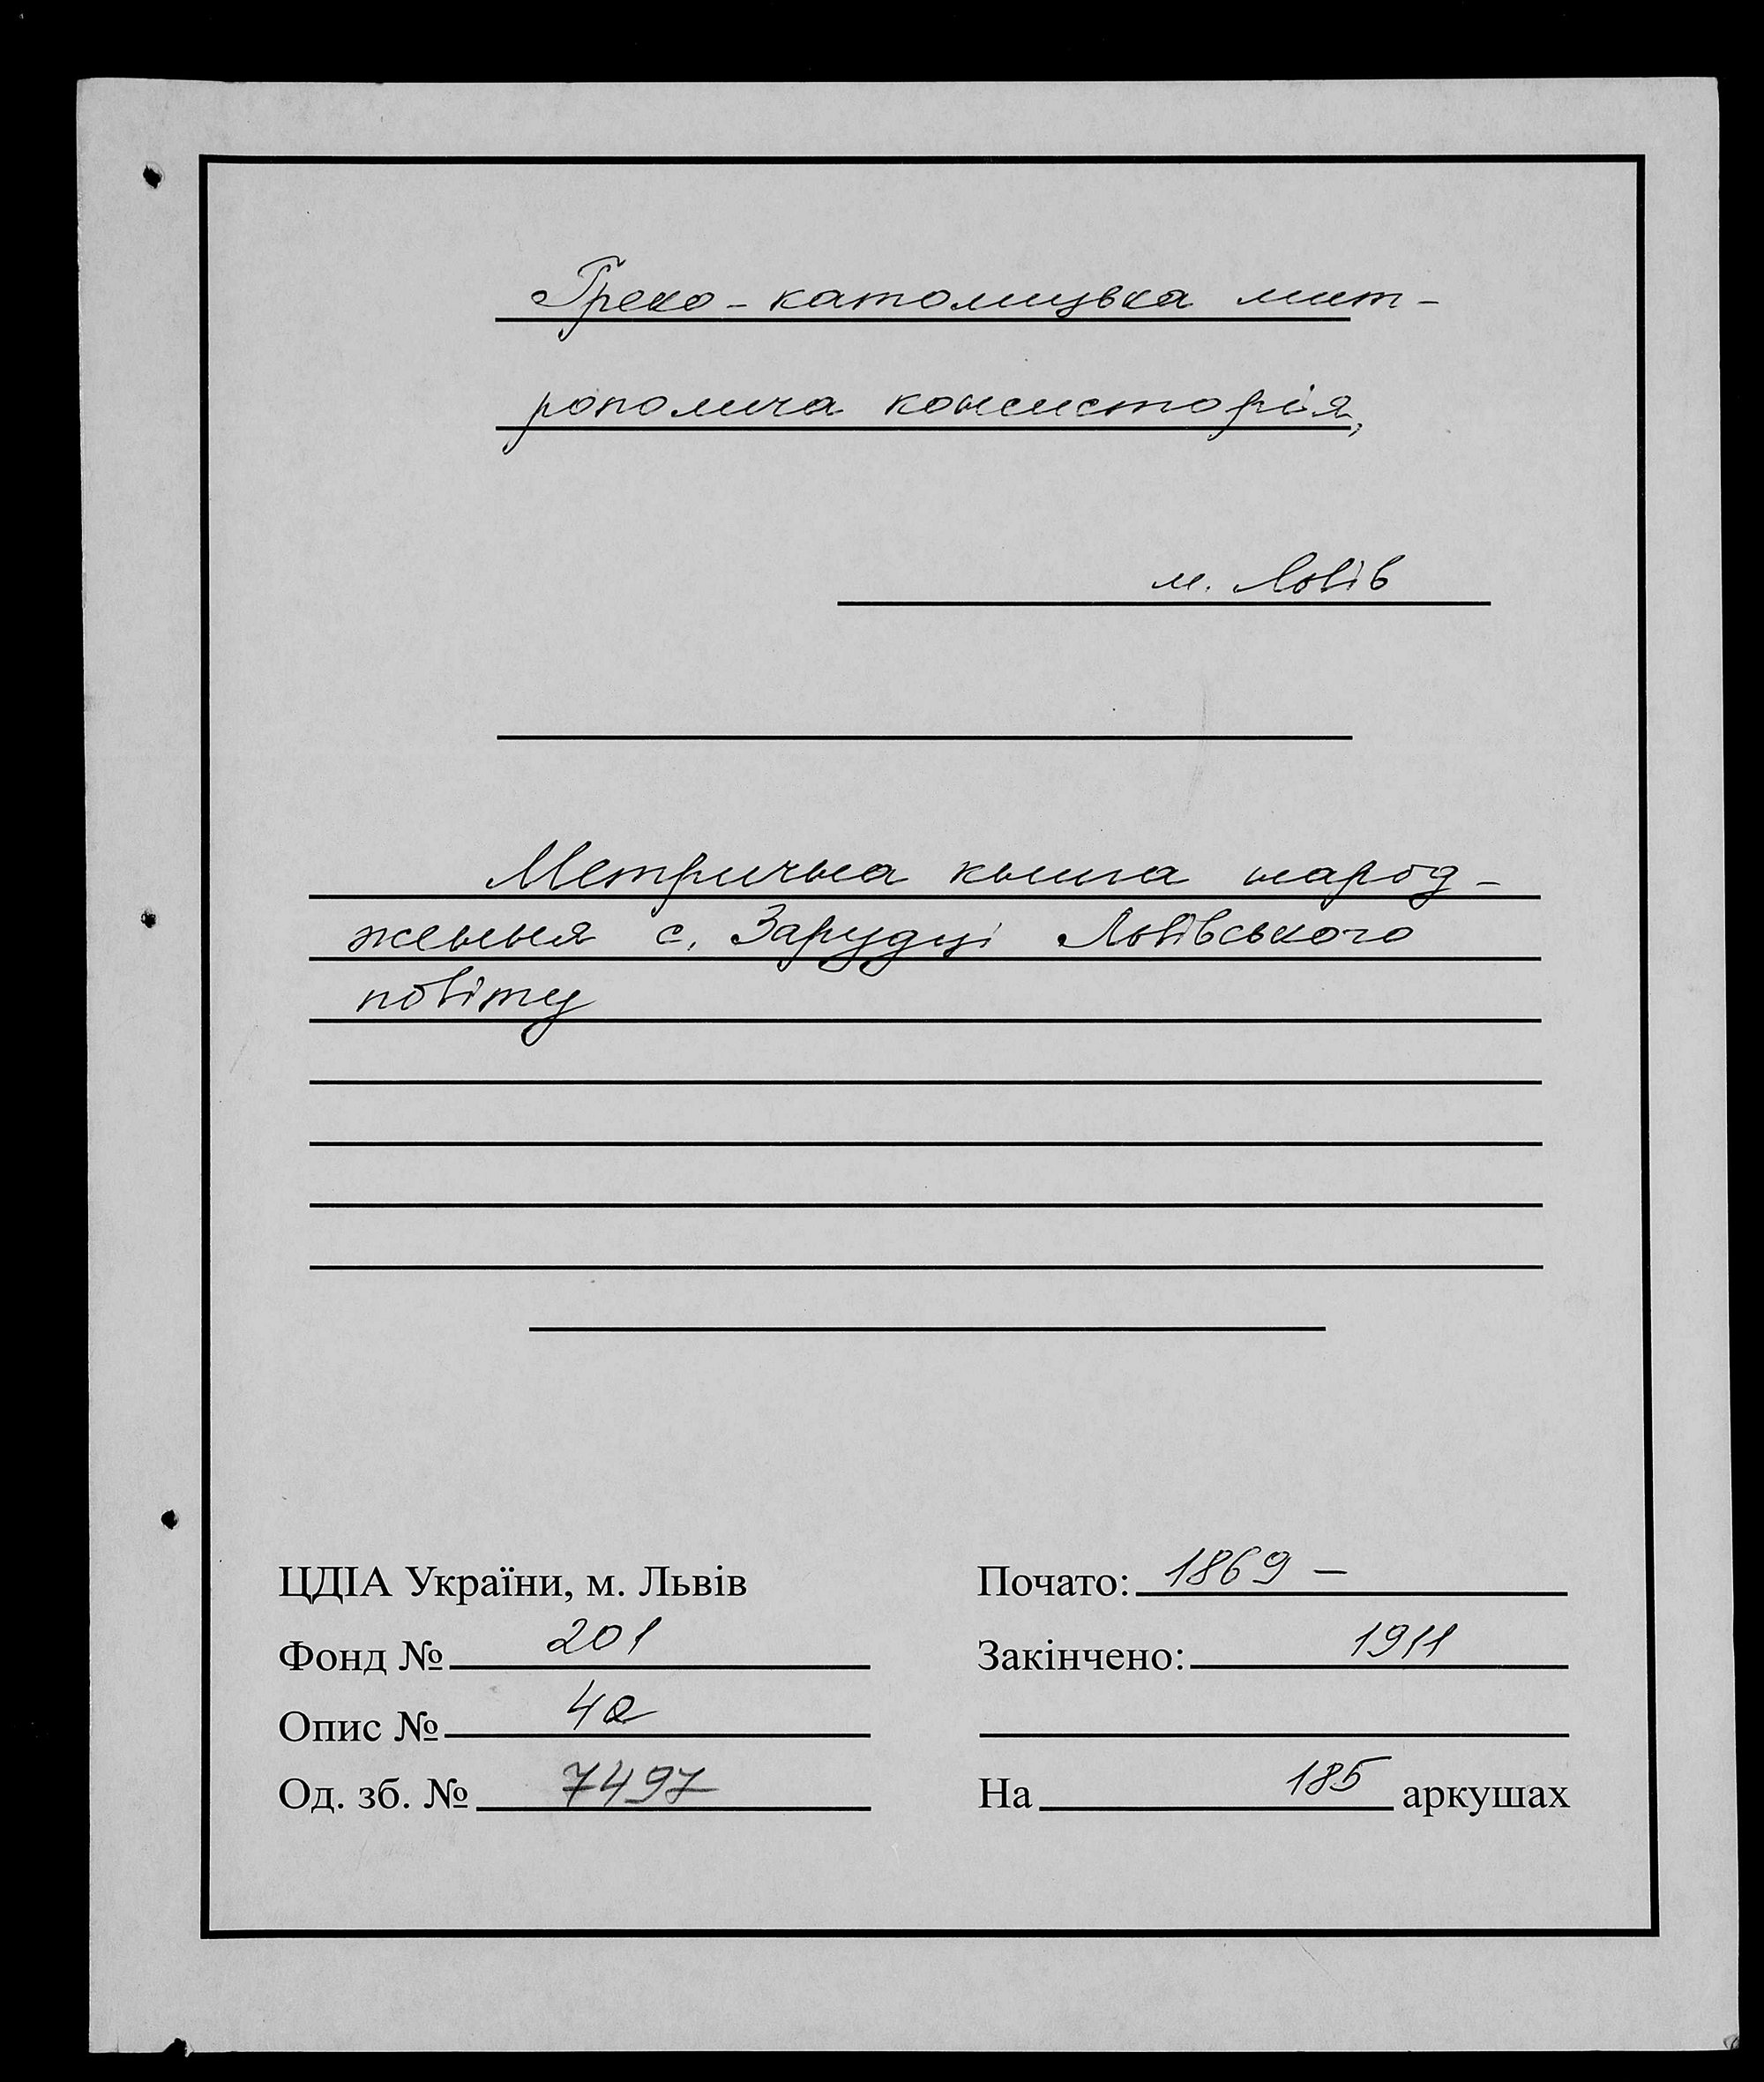 Греко-католицька мит-
рополича консисторія,
м. Львів
Метрична книга народ-
ження с. Зарудці Львівського
повіту
ЦДІА України, м. Львів
Фонд № 201
Опис № 4а
Од. зб. № 7497
Почато: 1869 –
Закінчено: 1911
На 185 аркушах